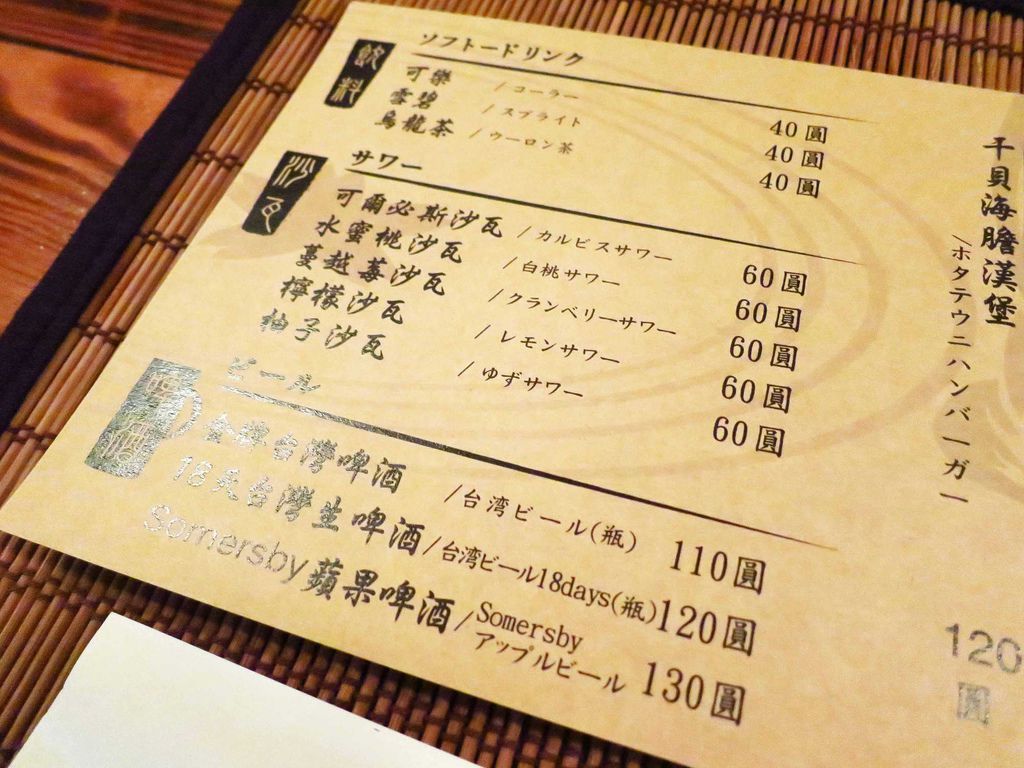 飲料
ソフトードリンク
可樂 / コーラー 40圓
雪碧 / スプライト 40圓
烏龍茶 / ウーロン茶 40圓
沙瓦
サワー
可爾必斯沙瓦 / カルピスサワー 60圓
水蜜桃沙瓦 / 白桃サワー 60圓
蔓越莓沙瓦 / クランベリーサワー 60圓
檸檬沙瓦 / レモンサワー 60圓
柚子沙瓦 / ゆずサワー 60圓
啤酒
ビール
金牌台灣啤酒 / 台湾ビール(瓶) 110圓
18天台灣生啤酒 / 台湾ビール18days(瓶) 120圓
Somersby蘋果啤酒 / Somersby
アップルビール 130圓
干貝海膽漢堡
/ホタテウニハンバーガー
120
圓